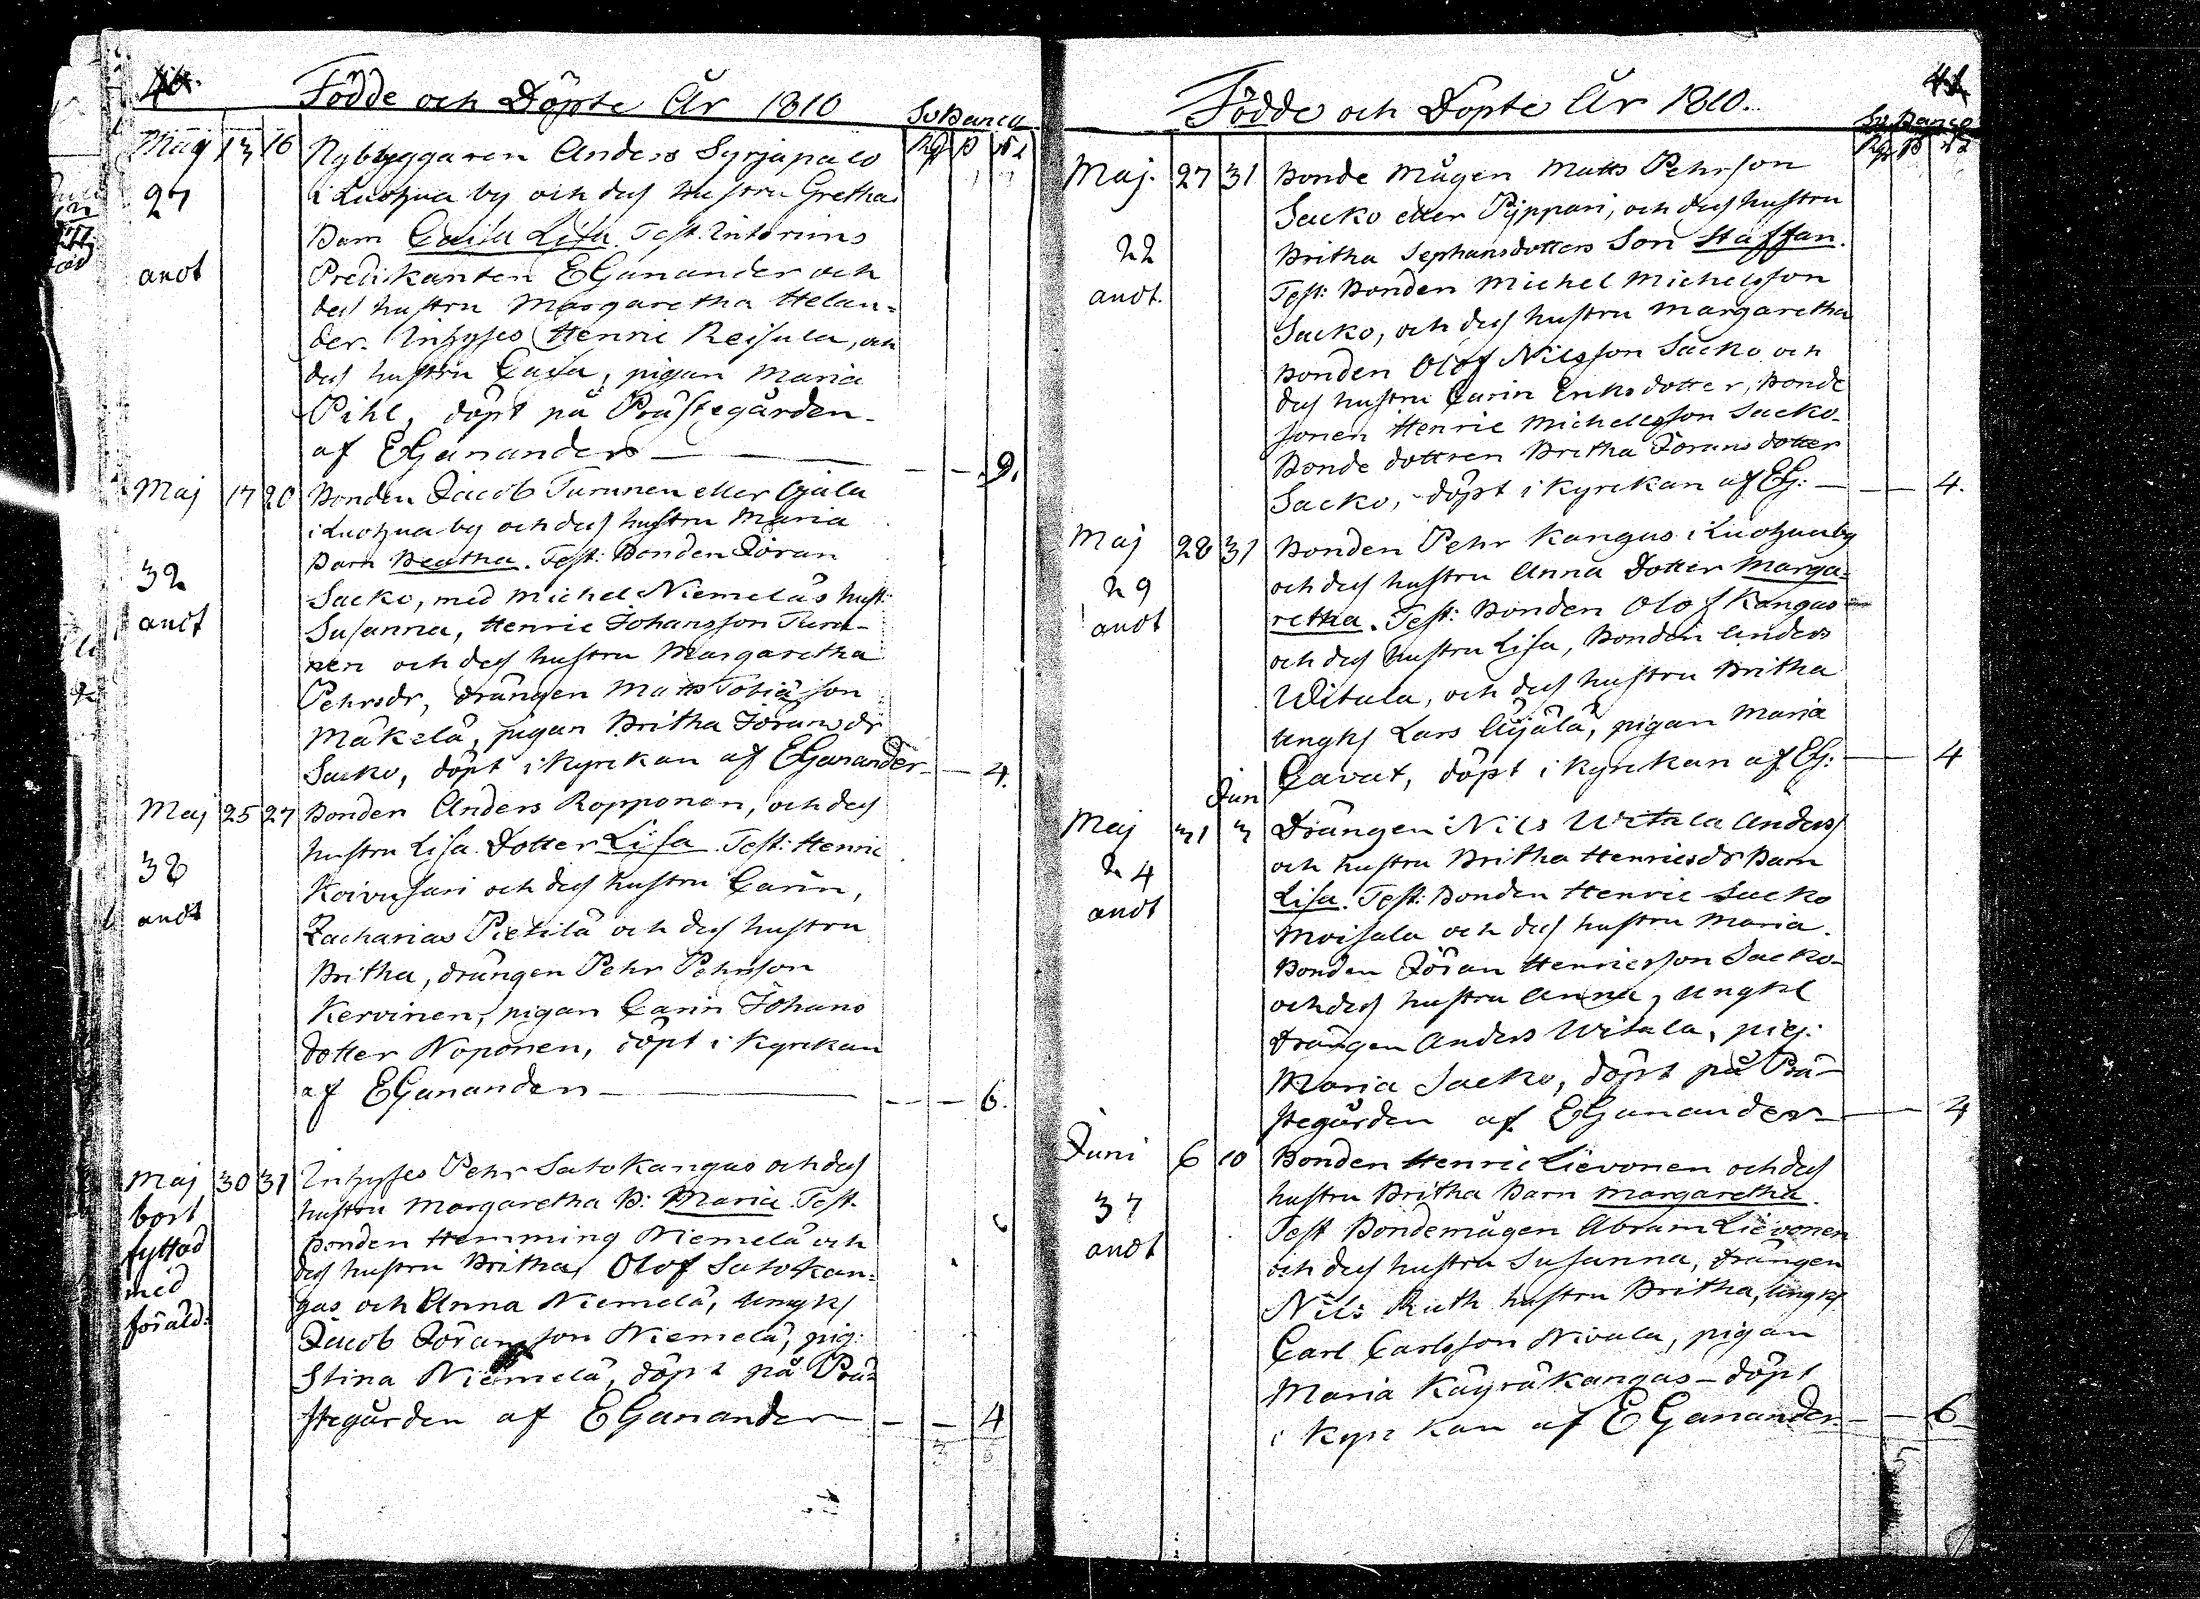 40.
Födde och Döpte År 1810
Sv Banco
Rg ß
Maij 13 16 Nybyggaren Anders Syrjäpalo
27 i Luohua by och dess hustru Gretha
Barn Caisa Lisa. Test. Interims
andt Predikanten EGananders och
dess hustru Margaretha Helan-
der. Inhyses Henric Reisula, och
dess hustru Caisa, pigan Maria
Pihl, döpt på Prästegården
af EGananders — 9.
Maj 17 20 Bonden Jacob Turunen eller Ojala
i Luohua by och dess hustru Maria
Barn Beatha. Test: Bonden Jöran
32 Sacko, med Michel Niemeläs hust:
andt Susanna, Henric Johansson Turu-
nen och dess hustru Margaretha
Pehrsdr, drängen Matts Tobiasson
Mäkelä, pigan Britha Jöransdr
Sacko, döpt i Kyrckan af EGanander — 4.
Maj 25 27 Bonden Anders Ropponen, och dess
hustru Lisa Dotter Lisa. Test: Henric
38 Koivusari och dess hustru Carin,
andt Zacharias Pietilä och dess hustru
Britha, drängen Pehr Pehrsson
Kervinen, pigan Carin Johans
dotter Noponen, döpt i Kyrckan
af EGanander — 6.
Maj 30 31 Inhyses Pehr Satokangas och dess
bort hustru Margaretha B: Maria Test.
Bonden Hemming Niemelä och
fyttad dess hustru Britha, Olof Satokan-
med gas och Anna Niemelä, Ungk
föräld: Jacob Jöransson Niemelä, pig:
Stina Niemelä, döpt på Prä-
stegården af EGanander — 4
41
Födde och Döpte År 1810.
Sv Banco
Rg ß
Maj. 27 31 Bonde Mågen Matts Pehrson
Sacko eller Pyppari, och dess hustru
22 Britha Sephansdotters Son Staffan.
andt. Test: Bonden Michel Michelsson
Sacko, och dess hustru Margaretha
Bonden Olof Nilsson Sacko och
dess hustru Carin Eriksdotter, Bonde
sonen Henric Michelsson Sacko
Bonde dottren Britha Joransdotter
Sacko, döpt i Kyrckan af EG: — 4.
Maj 28 31 Bonden Pehr Kangas i Luohua by
29 och dess hustru Anna Dotter Marga-
andt retha. Test: Bonden Olof Kangas
och dess hustru Lisa, Bonden Anders
Witala, och dess hustru Britha
Ungk Lars Äijälä, pigan Maria
Cavat, döpt i Kyrckan af EG: — 4
Jun
Maj 31 3 Drängen Nils Witala Anders
24 och hustru Britha Henricsdr Barn
andt Lisa. Test: Bonden Henric Sacko
Moisala och dess hustru Maria.
Bonden Jöran Henricsson Sacko
och dess hustru Anna, Ungkl
drängen Anders Witala, pig:
Maria Sacko, döpt på Prä-
stegården af EGanander — 4
Juni 6 10 Bonden Henric Lievonen och dess
hustru Britha Barn Margaretha.
37 Test Bondemågen Abram Lievonen
andt och dess hustru Susanna, drängen
Nils Ruth hustru Britha, Ungk
Carl Carlsson Nivala, pigan
Maria Käyräkangas — döpt
i Kyrckan af EGanander — 6